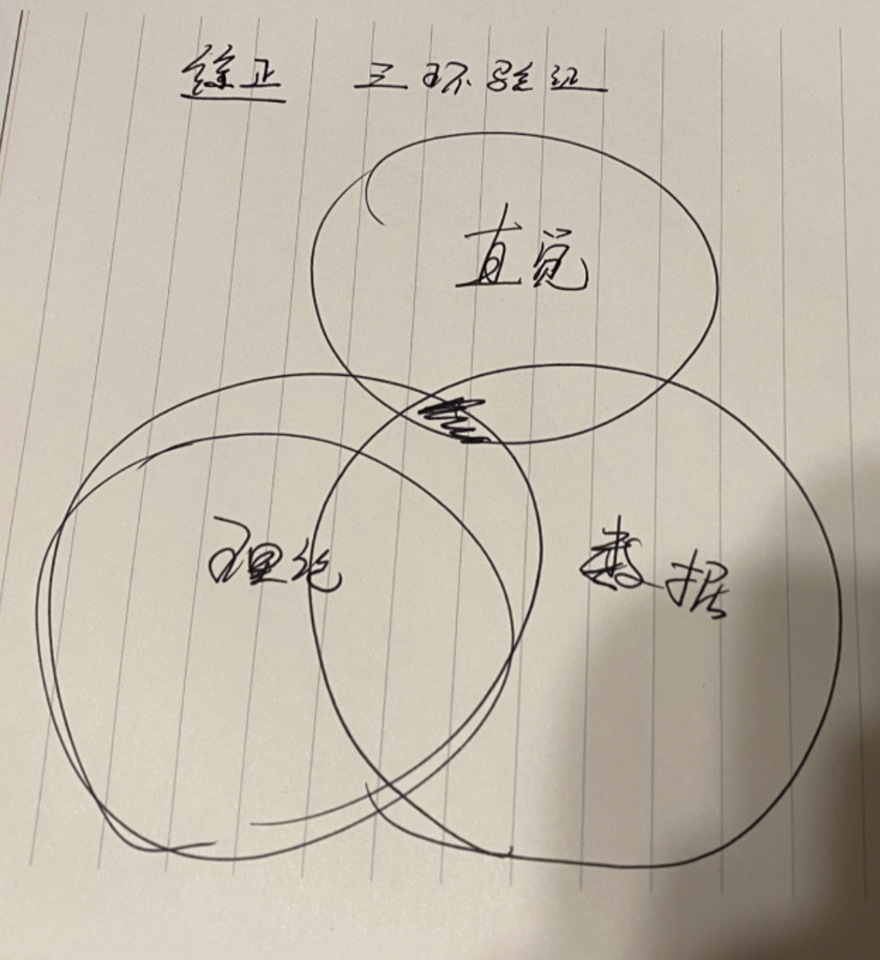 徐正 三环验证
直觉
理论 数据